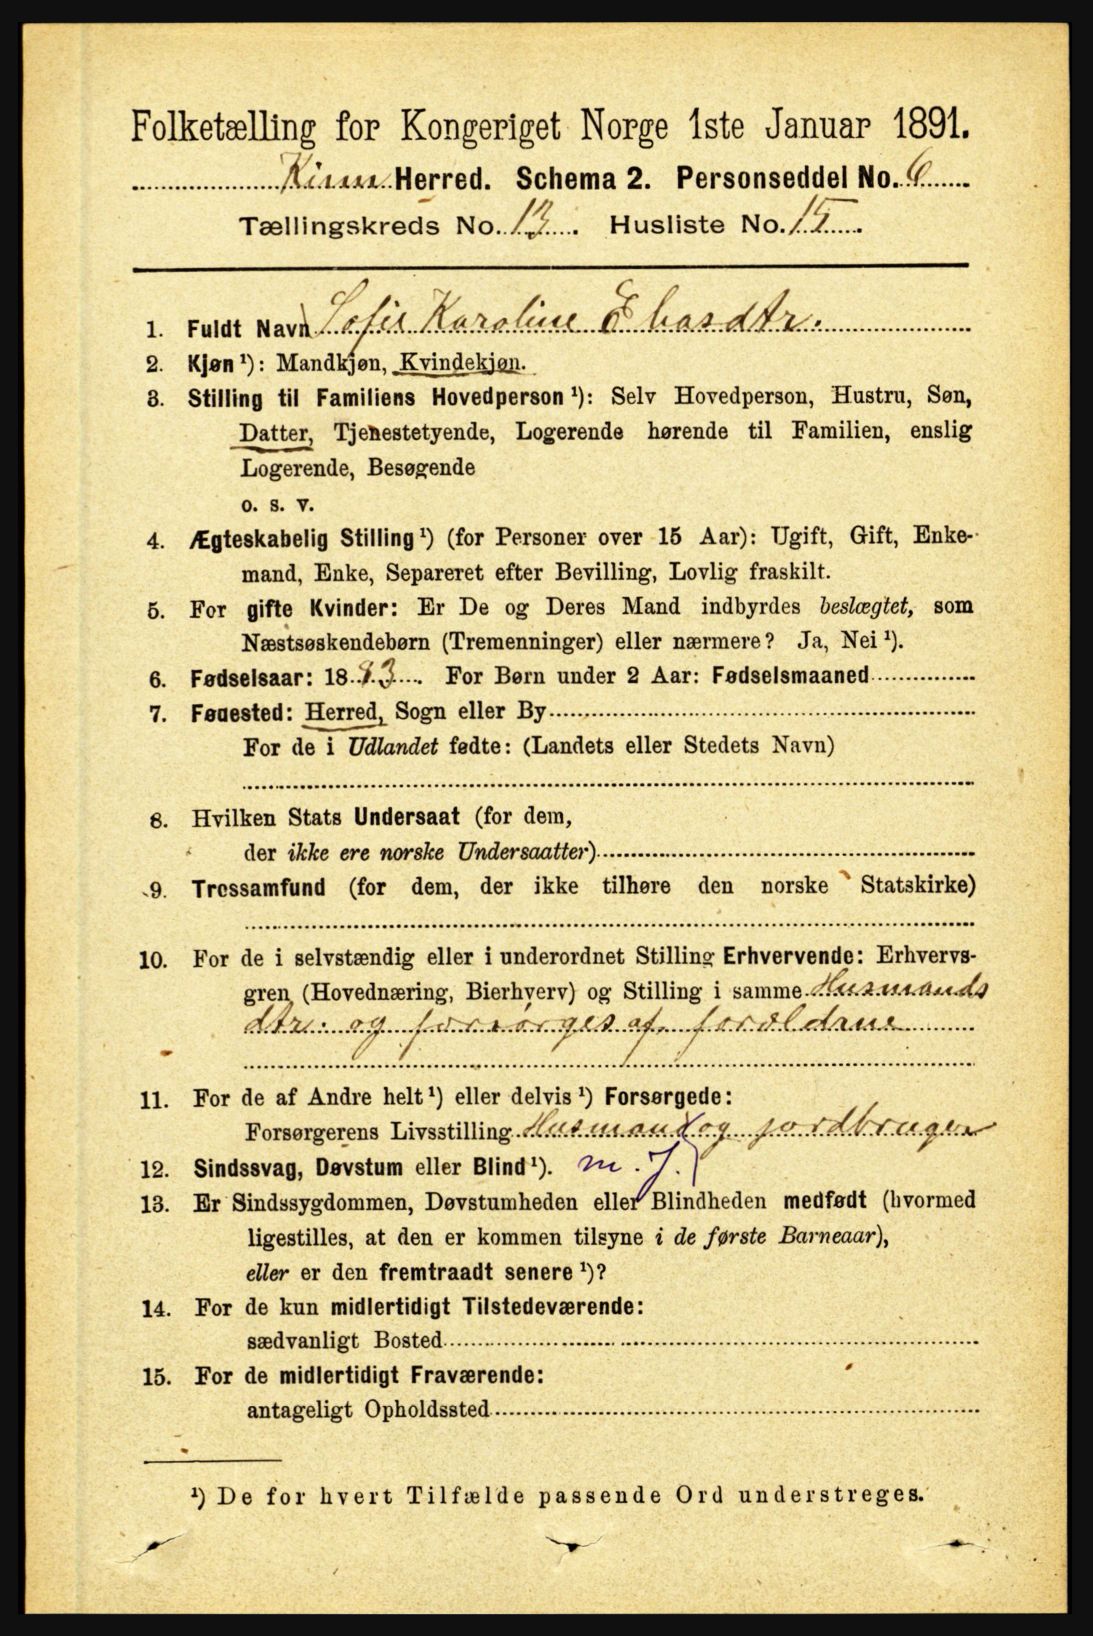 Folketælling for Kongeriget Norge 1ste Januar 1891.
Kinn Herred. Schema 2. Personseddel No. 6
Tællingskreds No. 13. Husliste No. 15.
1. Fuldt Navn Sofie Karoline Eliasdtr.
2. Kjøn ¹): Mandkjøn, Kvindekjøn.
3. Stilling til Familiens Hovedperson ¹): Selv Hovedperson, Hustru, Søn,
Datter, Tjenestetyende, Logerende hørende til Familien, enslig
Logerende, Besøgende
o. s. v.
4. Ægteskabelig Stilling ¹) (for Personer over 15 Aar): Ugift, Gift, Enke-
mand, Enke, Separeret efter Bevilling, Lovlig fraskilt.
5. For gifte Kvinder: Er De og Deres Mand indbyrdes beslægtet, som
Næstsøskendebørn (Tremenninger) eller nærmere? Ja, Nei ¹).
6. Fødselsaar: 1883. For Børn under 2 Aar: Fødselsmaaned
7. Fødested: Herred, Sogn eller By
For de i Udlandet fødte: (Landets eller Stedets Navn)
8. Hvilken Stats Undersaat (for dem,
der ikke ere norske Undersaatter)
9. Trossamfund (for dem, der ikke tilhøre den norske Statskirke)
10. For de i selvstændig eller i underordnet Stilling Erhvervende: Erhvervs-
gren (Hovednæring, Bierhverv) og Stilling i samme Husmands
dtr. og forsørges af forældrene
11. For de af Andre helt ¹) eller delvis ¹) Forsørgede:
Forsørgerens Livsstilling Husmand og jordbruger
12. Sindssvag, Døvstum eller Blind ¹). m. J.
13. Er Sindssygdommen, Døvstumheden eller Blindheden medfødt (hvormed
ligestilles, at den er kommen tilsyne i de første Barneaar),
eller er den fremtraadt senere ¹)?
14. For de kun midlertidigt Tilstedeværende:
sædvanligt Bosted
15. For de midlertidigt Fraværende:
antageligt Opholdssted
¹) De for hvert Tilfælde passende Ord understreges.